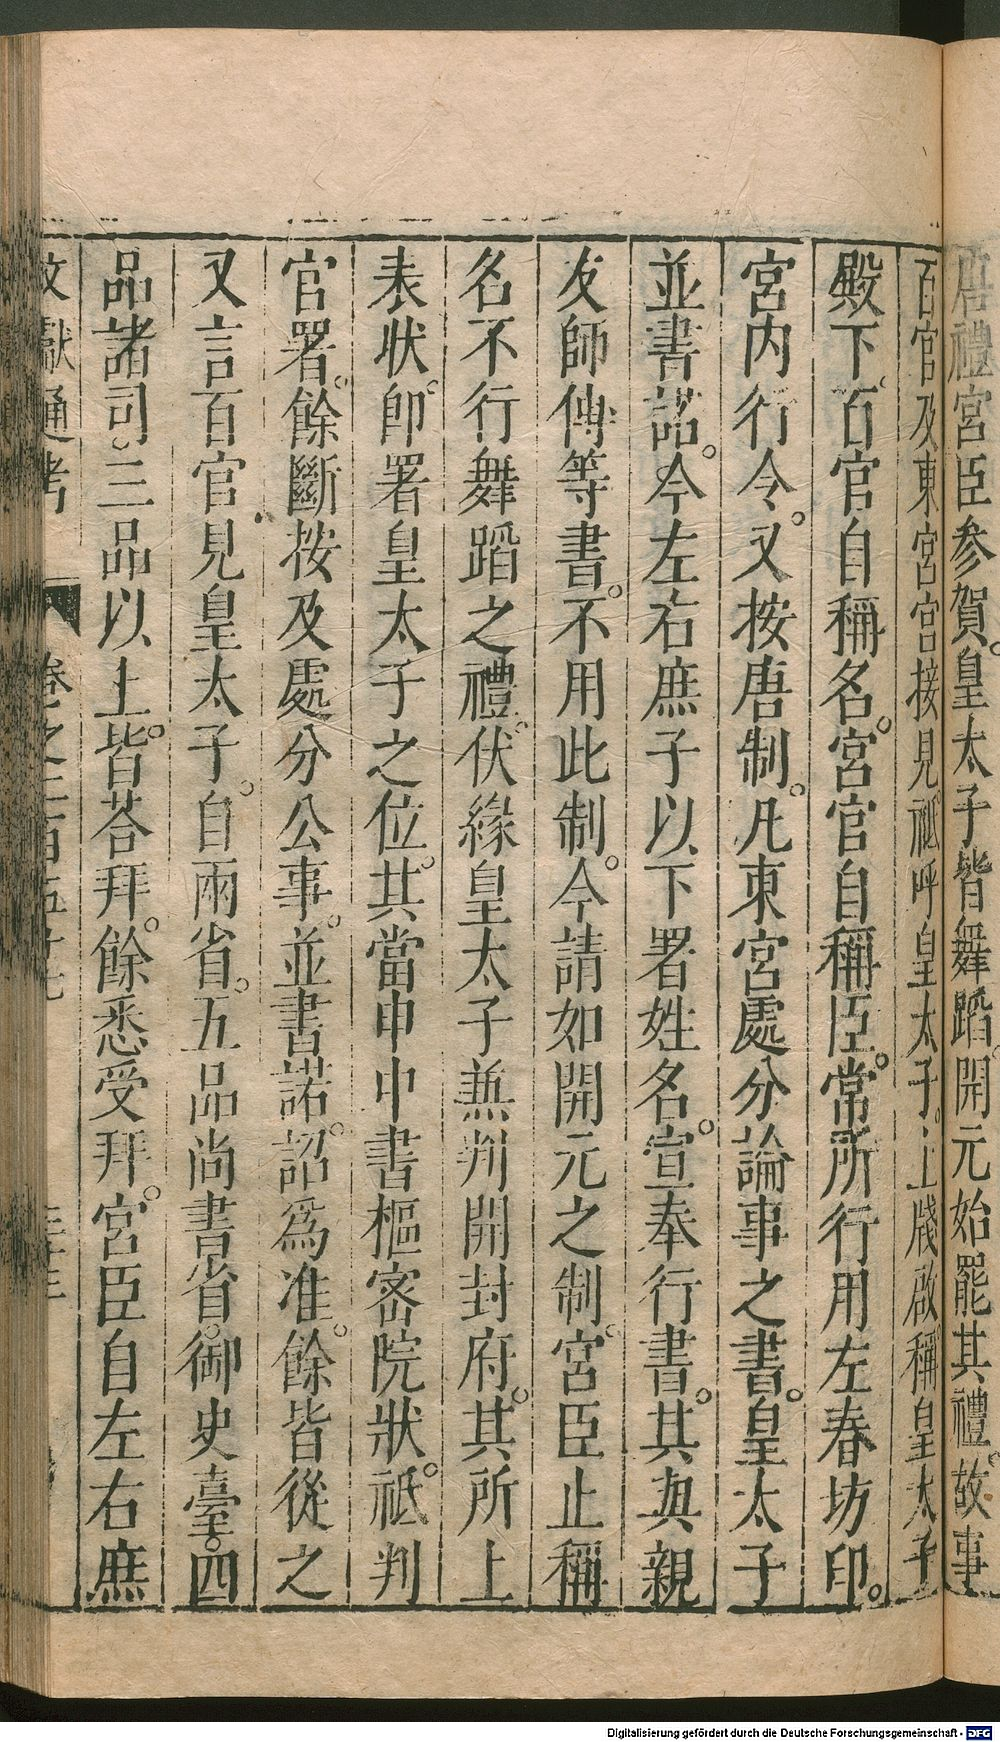 唐禮宮臣參賀。皇太子皆舞蹈。開元始罷其禮。故事
百官及東宮官接見祗呼皇太子。上牋啟稱皇太子
殿下。百官自稱名。宮官自稱臣。常所行用左春坊印。
宮内行令。又按唐制。凡東宮處分論事之書。皇太子
並書諾。今左右庶子以下署姓名。宣奉行書。其與親
友師傅等書。不用此制。今請如開元之制。宮臣止稱
名不行舞蹈之禮。伏緣皇太子兼判開封府。其所上
表狀。卽署皇太子之位。其當申中書樞密院狀。祗判
官署。餘斷按及處分公事。並書諾。詔爲准。餘皆從之
又言百官見皇太子。自兩省。五品尚書省。御史臺。四
品諸司。三品以上。皆荅拜。餘悉受拜。宮臣自左右庶
文獻通考 卷之二百五十七
Digitalisierung gefördert durch die Deutsche Forschungsgemeinschaft - DFG